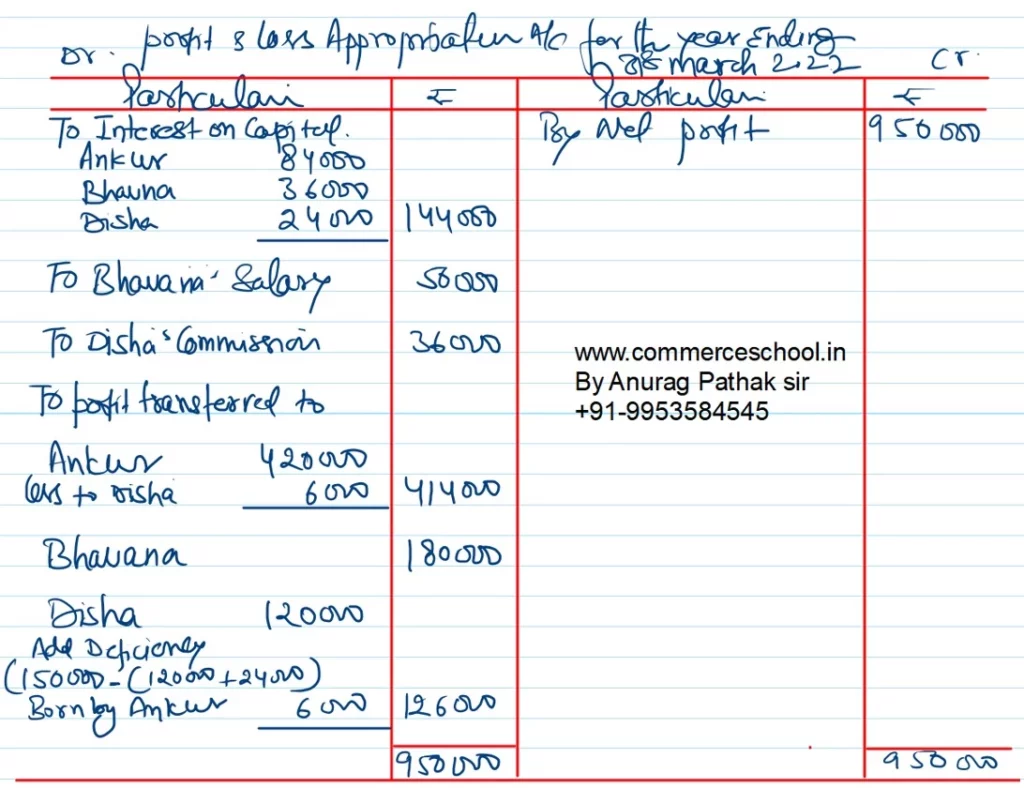 Dr. Profit & Loss Appropriation A/c for the year Ending
31st March 2022 Cr.
Particulars ₹ Particulars ₹
To Interest on Capital. By Net profit 950000
Ankur 84000
Bhavna 36000
Disha 24000 144000
To Bhavana's Salary 50000
To Disha's Commission 36000
www.commerceschool.in
By Anurag Pathak sir
+91-9953584545
To profit transferred to
Ankur 420000
less to Disha 6000 414000
Bhavana 180000
Disha 120000
Add Deficiency
(150000-(120000+24000)
Born by Ankur 6000 126000
950000 950000